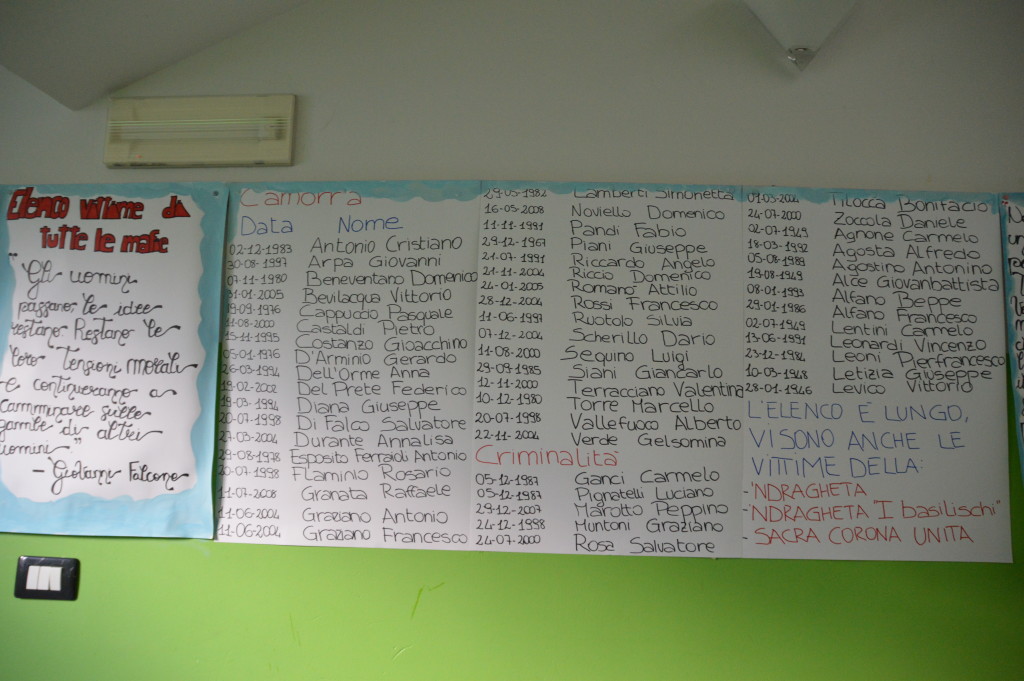 Elenco vittime di
tutte le mafie
"Gli uomini
passano, le idee
restano. Restano le
loro tensioni morali
e continueranno a
camminare sulle
gambe di altri
uomini".
- Giovanni Falcone
Camorra
Data Nome
02-12-1983 Antonio Cristiano
30-08-1997 Arpa Giovanni
07-11-1980 Beneventano Domenico
31-01-2005 Bevilacqua Vittorio
19-09-1976 Cappuccio Pasquale
11-08-2000 Castaldi Pietro
15-11-1995 Costanzo Gioacchino
05-01-1976 D'Arminio Gerardo
26-03-1994 Dell'Orme Anna
19-02-2002 Del Prete Federico
19-03-1994 Diana Giuseppe
20-07-1998 Di Falco Salvatore
27-03-2004 Durante Annalisa
29-08-1978 Esposito Ferraioli Antonio
20-07-1998 Flaminio Rosario
11-07-2008 Granata Raffaele
11-06-2004 Graziano Antonio
11-06-2004 Graziano Francesco
29-05-1982 Lamberti Simonetta
16-05-2008 Noviello Domenico
11-11-1991 Pandi Fabio
29-12-1967 Piani Giuseppe
21-07-1991 Riccardo Angelo
21-11-2004 Riccio Domenico
24-01-2005 Romano Attilio
28-12-2004 Rossi Francesco
11-06-1997 Ruotolo Silvia
07-12-2004 Scherillo Dario
11-08-2000 Sequino Luigi
29-09-1985 Siani Giancarlo
12-11-2000 Terracciano Valentina
10-12-1980 Torre Marcello
20-07-1998 Vallefuoco Alberto
22-11-2004 Verde Gelsomina
Criminalità
05-12-1987 Ganci Carmelo
05-12-1987 Pignatelli Luciano
29-12-2007 Marotto Peppino
24-12-1998 Muntoni Graziano
24-07-2000 Rosa Salvatore
01-05-2004 Tilocca Bonifacio
24-07-2000 Zoccola Daniele
02-07-1949 Agnone Carmelo
18-03-1992 Agosta Alfredo
05-08-1989 Agostino Antonino
19-08-1949 Alce Giovanbattista
08-01-1993 Alfano Beppe
29-01-1986 Alfano Francesco
02-07-1949 Lentini Carmelo
13-06-1991 Leonardi Vincenzo
23-12-1984 Leoni Pierfrancesco
10-03-1948 Letizia Giuseppe
28-01-1946 Levico Vittorio
L'ELENCO È LUNGO,
VI SONO ANCHE LE
VITTIME DELLA:
- 'NDRAGHETA
- 'NDRAGHETA "I basilischi"
- SACRA CORONA UNITA